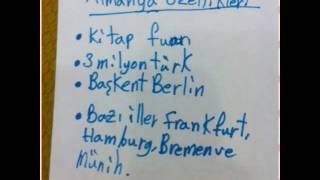 Almanya özellikleri
• Kitap fuarı
• 3 milyon türk
• Başkent Berlin
• Bazı iller frankfurt,
Hamburg, Bremen ve
Münih.